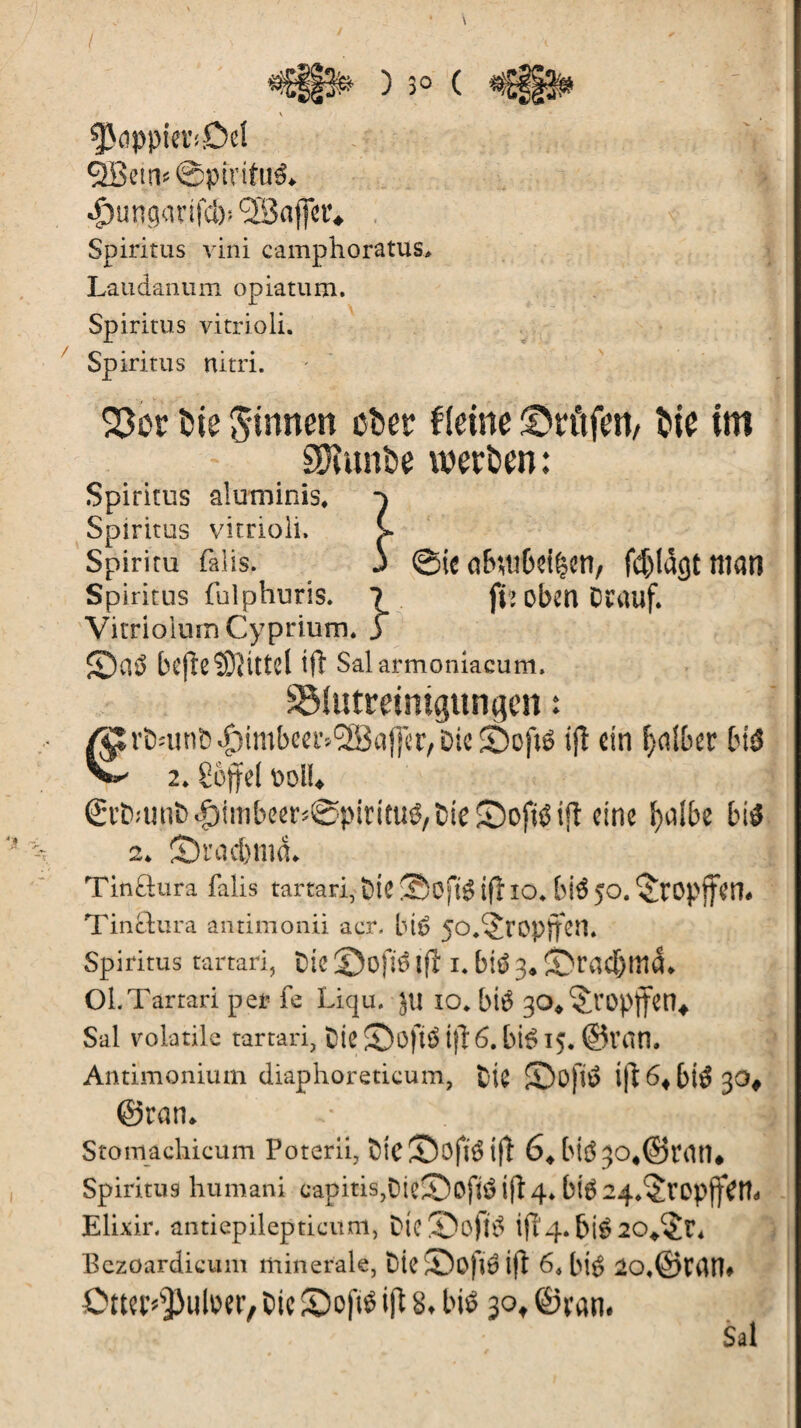 ) 30 (
Pappier-Oel
Wein-Spiritus.
Hungarisch-Wasser.
Spiritus vini camphoratus.
Laudanum opiatum.
Spiritus vitrioli.
Spiritus nitri.
Vor die Finnen oder kleine Drüsen, die im
Munde werden:
Spiritus aluminis.
Spiritus vitrioli.
Spiritu salis.
Sie abzubeitzen, schlägt man
Spiritus sulphuris.
sie oben drauf.
Vitriolum Cyprium.
Das beste Mittel ist Sal armoniacum.
Blutreinigungen:
Erd-und Himbeer-Wasser, die Dosis ist ein halber bis
2. Löffel voll.
Erd-und Himbeer-Spiritus, die Dosis ist eine halbe bis
2. Drachmä.
Tinctura salis tartari, die Dosis ist 10. bis 50. Tropffen.
Tinctura antimonii acr. bis 50. Tropffen.
Spiritus tartari, die Dosis ist 1. bis 3. Drachmä.
Ol. Tartari per se Liqu. zu 10. bis 30. Tropffen.
Sal volatile tartari, die Dosis ist 6. bis 15. Gran.
Antimonium diaphoreticum, die Dosis ist 6. bis 30.
Gran.
Stomachicum Poterii, die Dosis ist 6. bis 30. Gran.
Spiritus humani capitis, die Dosis ist 4. bis 24. Tropffen.
Elixir. antiepilepticum, die Dosis ist 4. bis 20. Tr.
Bezoardicum minerale, die Dosis ist 6. bis 20. Gran.
Otter-Pulver, die Dosis ist 8. bis 30. Gran.
Sal